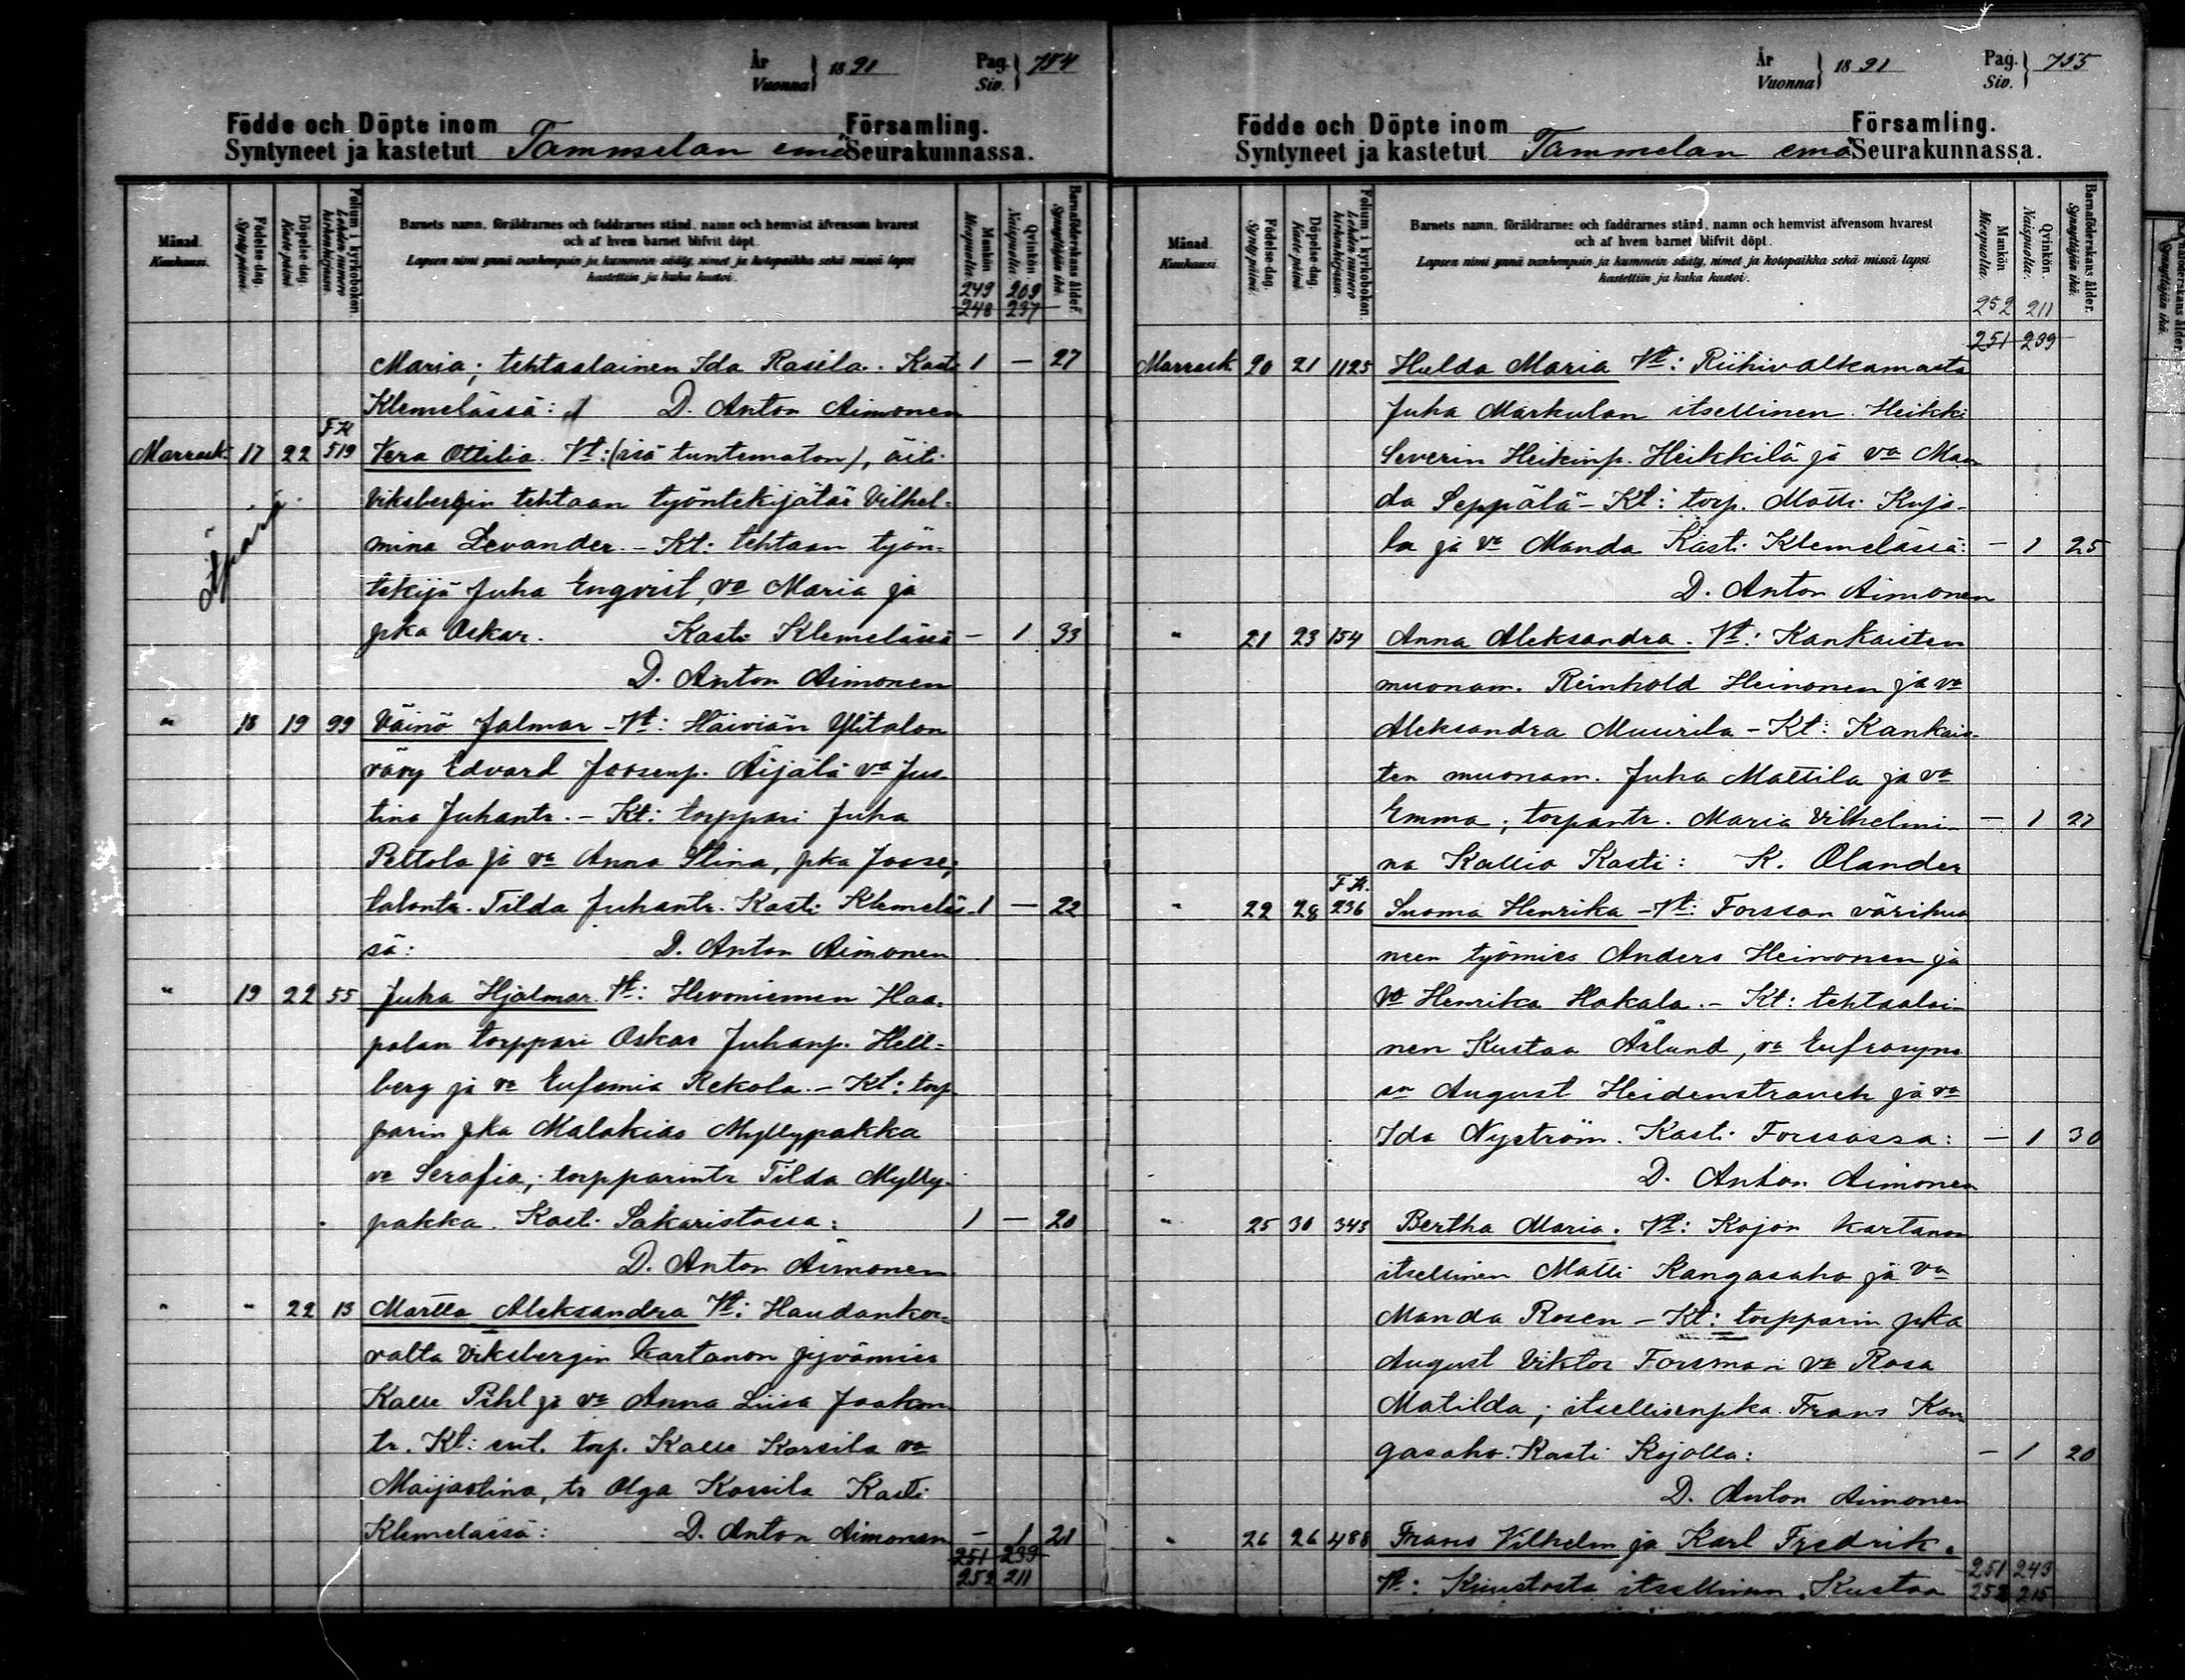 År Vuonna 1891 Pag. Siv. 754
Födde och Döpte inom Församling.
Syntyneet ja kastetut Tammelan emä Seurakunnassa.
Månad. Kuukausi.
Födelse dag. Synty päivä.
Döpelse dag. Kaste päivä.
Folium i kyrkobokon. Lehden numero kirkonkirjassa.
Barnets namn, föräldrarnes och faddrarnes stånd, namn och hemvist äfvensom hvarest
och af hvem barnet blifvit döpt.
Lapsen nimi ynnä vanhempain ja kummein sääty, nimet ja kotopaikka sekä missä lapsi
kastettiin ja kuka kastoi.
Mankön Miespuolta.
Qvinkön. Naispuolta.
Barnaföderskans ålder. Synnyttäjän ikä.
249 209
248 237
Maria; tehtaslainen Ida Rasila. Kasti 1 — 27
Klemelässä: D. Anton Aimonen
F K
Marrask. 17 22 519 Vera Ottilia. Vt: (isä tuntematon), äiti
Viksbergin tehtaan työntekijätär Vilhel-
mina Levander. - Kt: tehtaan työn-
tekijä Juha Enqvist, va Maria ja
pka Oskar. Kasti Klemelässä — 1 33
D. Anton Aimonen
" 18 19 99 Väinö Jalmar - Vt: Häiviän Ylitalon
vävy Edvard Joosenp. Äijälä va Jus-
tina Juhantr. - Kt: torppari Juha
Peltola ja va Anna Stina, pka Joose;
talontr. Tilda Juhantr. Kasti Klemeläs- 1 — 22
sä: D. Anton Aimonen
" 19 22 55 Juha Hjalmar. Vt: Hevoniemen Haa-
palan torppari Oskar Juhanp. Hell-
berg ja va Eufemia Rekola. - Kt: torp-
parin pka Malakias Myllypakka
va Serafia; torpparintr Tilda Mylly-
pakka. Kasti Sakaristossa: 1 — 20
D. Anton Aimonen
" " 22 13 Martta Aleksandra Vt: Haudankor-
valta Viksbergin kartanon jyvämies
Kalle Pihl ja va Anna Liisa Jaakon-
tr. Kt: ent. torp. Kalle Korsila va
Maijastina, tr Olga Korsila Kasti
Klemelässä: D. Anton Aimonen — 1 21
251 239
252 211
År Vuonna 1891 Pag. Siv. 755
Födde och Döpte inom Församling.
Syntyneet ja kastetut Tammelan emä Seurakunnassa.
Månad. Kuukausi.
Födelse dag. Synty päivä.
Döpelse dag. Kaste päivä.
Folium i kyrkobokon. Lehden numero kirkonkirjassa.
Barnets namn, föräldrarnes och faddrarnes stånd, namn och hemvist äfvensom hvarest
och af hvem barnet blifvit döpt.
Lapsen nimi ynnä vanhempain ja kummein sääty, nimet ja kotopaikka sekä missä lapsi
kastettiin ja kuka kastoi.
Mankön Miespuolta.
Qvinkön. Naispuolta.
Barnaföderskans ålder. Synnyttäjän ikä.
252 211
251 239
Marrask. 20 21 1125 Hulda Maria Vt: Riihivalkamasta
Juha Markulan itsellinen Heikki
Severin Heikinp. Heikkilä ja va Man-
da Seppälä - Kt: torp. Matti Kujа-
la ja va Manda Kasti Klemelässä: — 1 25
D. Anton Aimonen
" 21 23 154 Anna Aleksandra. Vt: Kankaisten
muonam. Reinhold Heinonen ja va
Aleksandra Muurila - Kt: Kankais-
ten muonam. Juha Mattila ja va
Emma; torpantr. Maria Vilhelmi- — 1 27
na Kallio Kasti: K. Olander
F K.
" 22 28 236 Suoma Henrika - Vt: Forssan värihuo
neen työmies Anders Heinonen ja
va Henrika Hakala. - Kt: tehtaalai-
nen Kustaa Åslund, va Eufrosyna
sn August Heidenstrauch ja va
Ida Nyström. Kasti Forssassa: — 1 30
D. Anton Aimonen
" 25 30 343 Bertha Maria. Vt: Kojon kartanon
itsellinen Matti Kangasaho ja va
Manda Rosen - Kt: torpparin pka
August Viktor Forsman va Rosa
Matilda; itsellisenpka. Frans Kan-
gasaho. Kasti Kojolla: — 1 20
D. Anton Aimonen
" 26 26 488 Frans Vilhelm ja Karl Fredrik.
Vt: Kuustosta itsellinen Kustaa
251 243
252 215